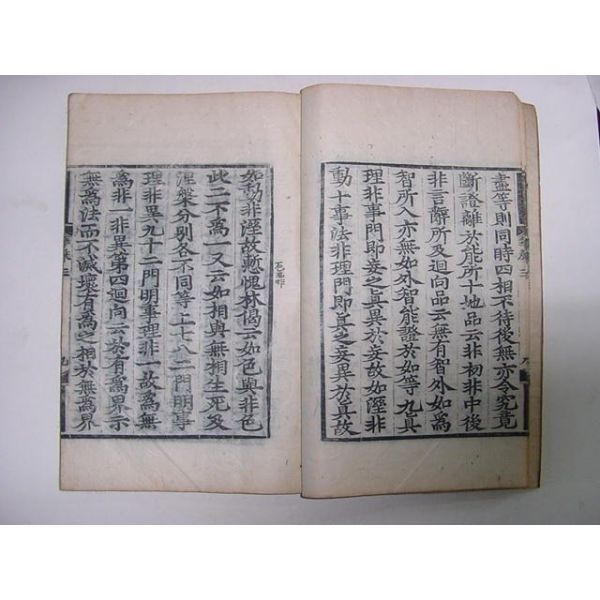 盡等則同時四相不待後無亦令究竟
斷證離於能所十地品云非初非中後
非言辭所及迴向品云無有智外如爲
智所入亦無如外智能證於如等九真
理非事門即妄之真異於妄故如溼非
動十事法非理門即真之妄異於真故
如動非溼故慙愧林偈云如色與非色
此二不爲一又云如相與無相生死及
涅槃分別各不同等上七八二門明事
理非異九十二門明事理非一故爲無
爲非一非異第四迴向云於有爲界示
無爲法而不滅壞有爲之相於無爲界